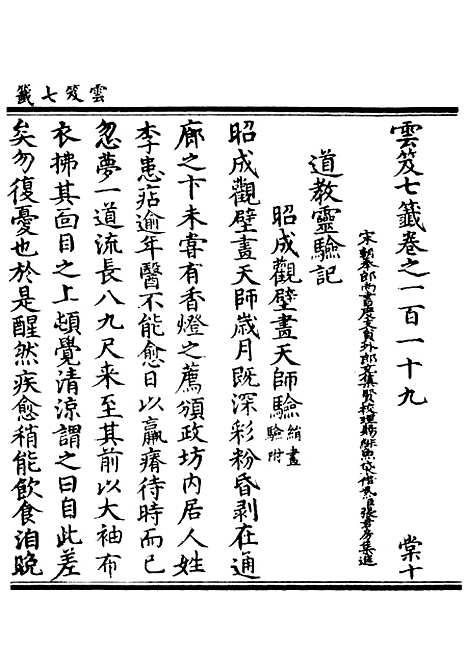 雲笈七籤
雲笈七籤卷之一百一十九 棠十
宋朝奉郎尚書度支員外郎充集賢校理賜緋魚袋借紫臣張君房集進
道教靈驗記
昭成觀壁畫天師驗 絹畫驗附
昭成觀壁畫天師歲月既深彩粉昏剥在通
廊之下未甞有香燈之薦頒政坊内居人姓
李患痁逾年醫不能愈日以羸瘠待時而已
忽夢一道流長八九尺来至其前以大袖布
衣拂其面目之上頓覺清涼謂之曰自此差
矣勿復憂也於是醒然疾愈稍能飲食洎晚